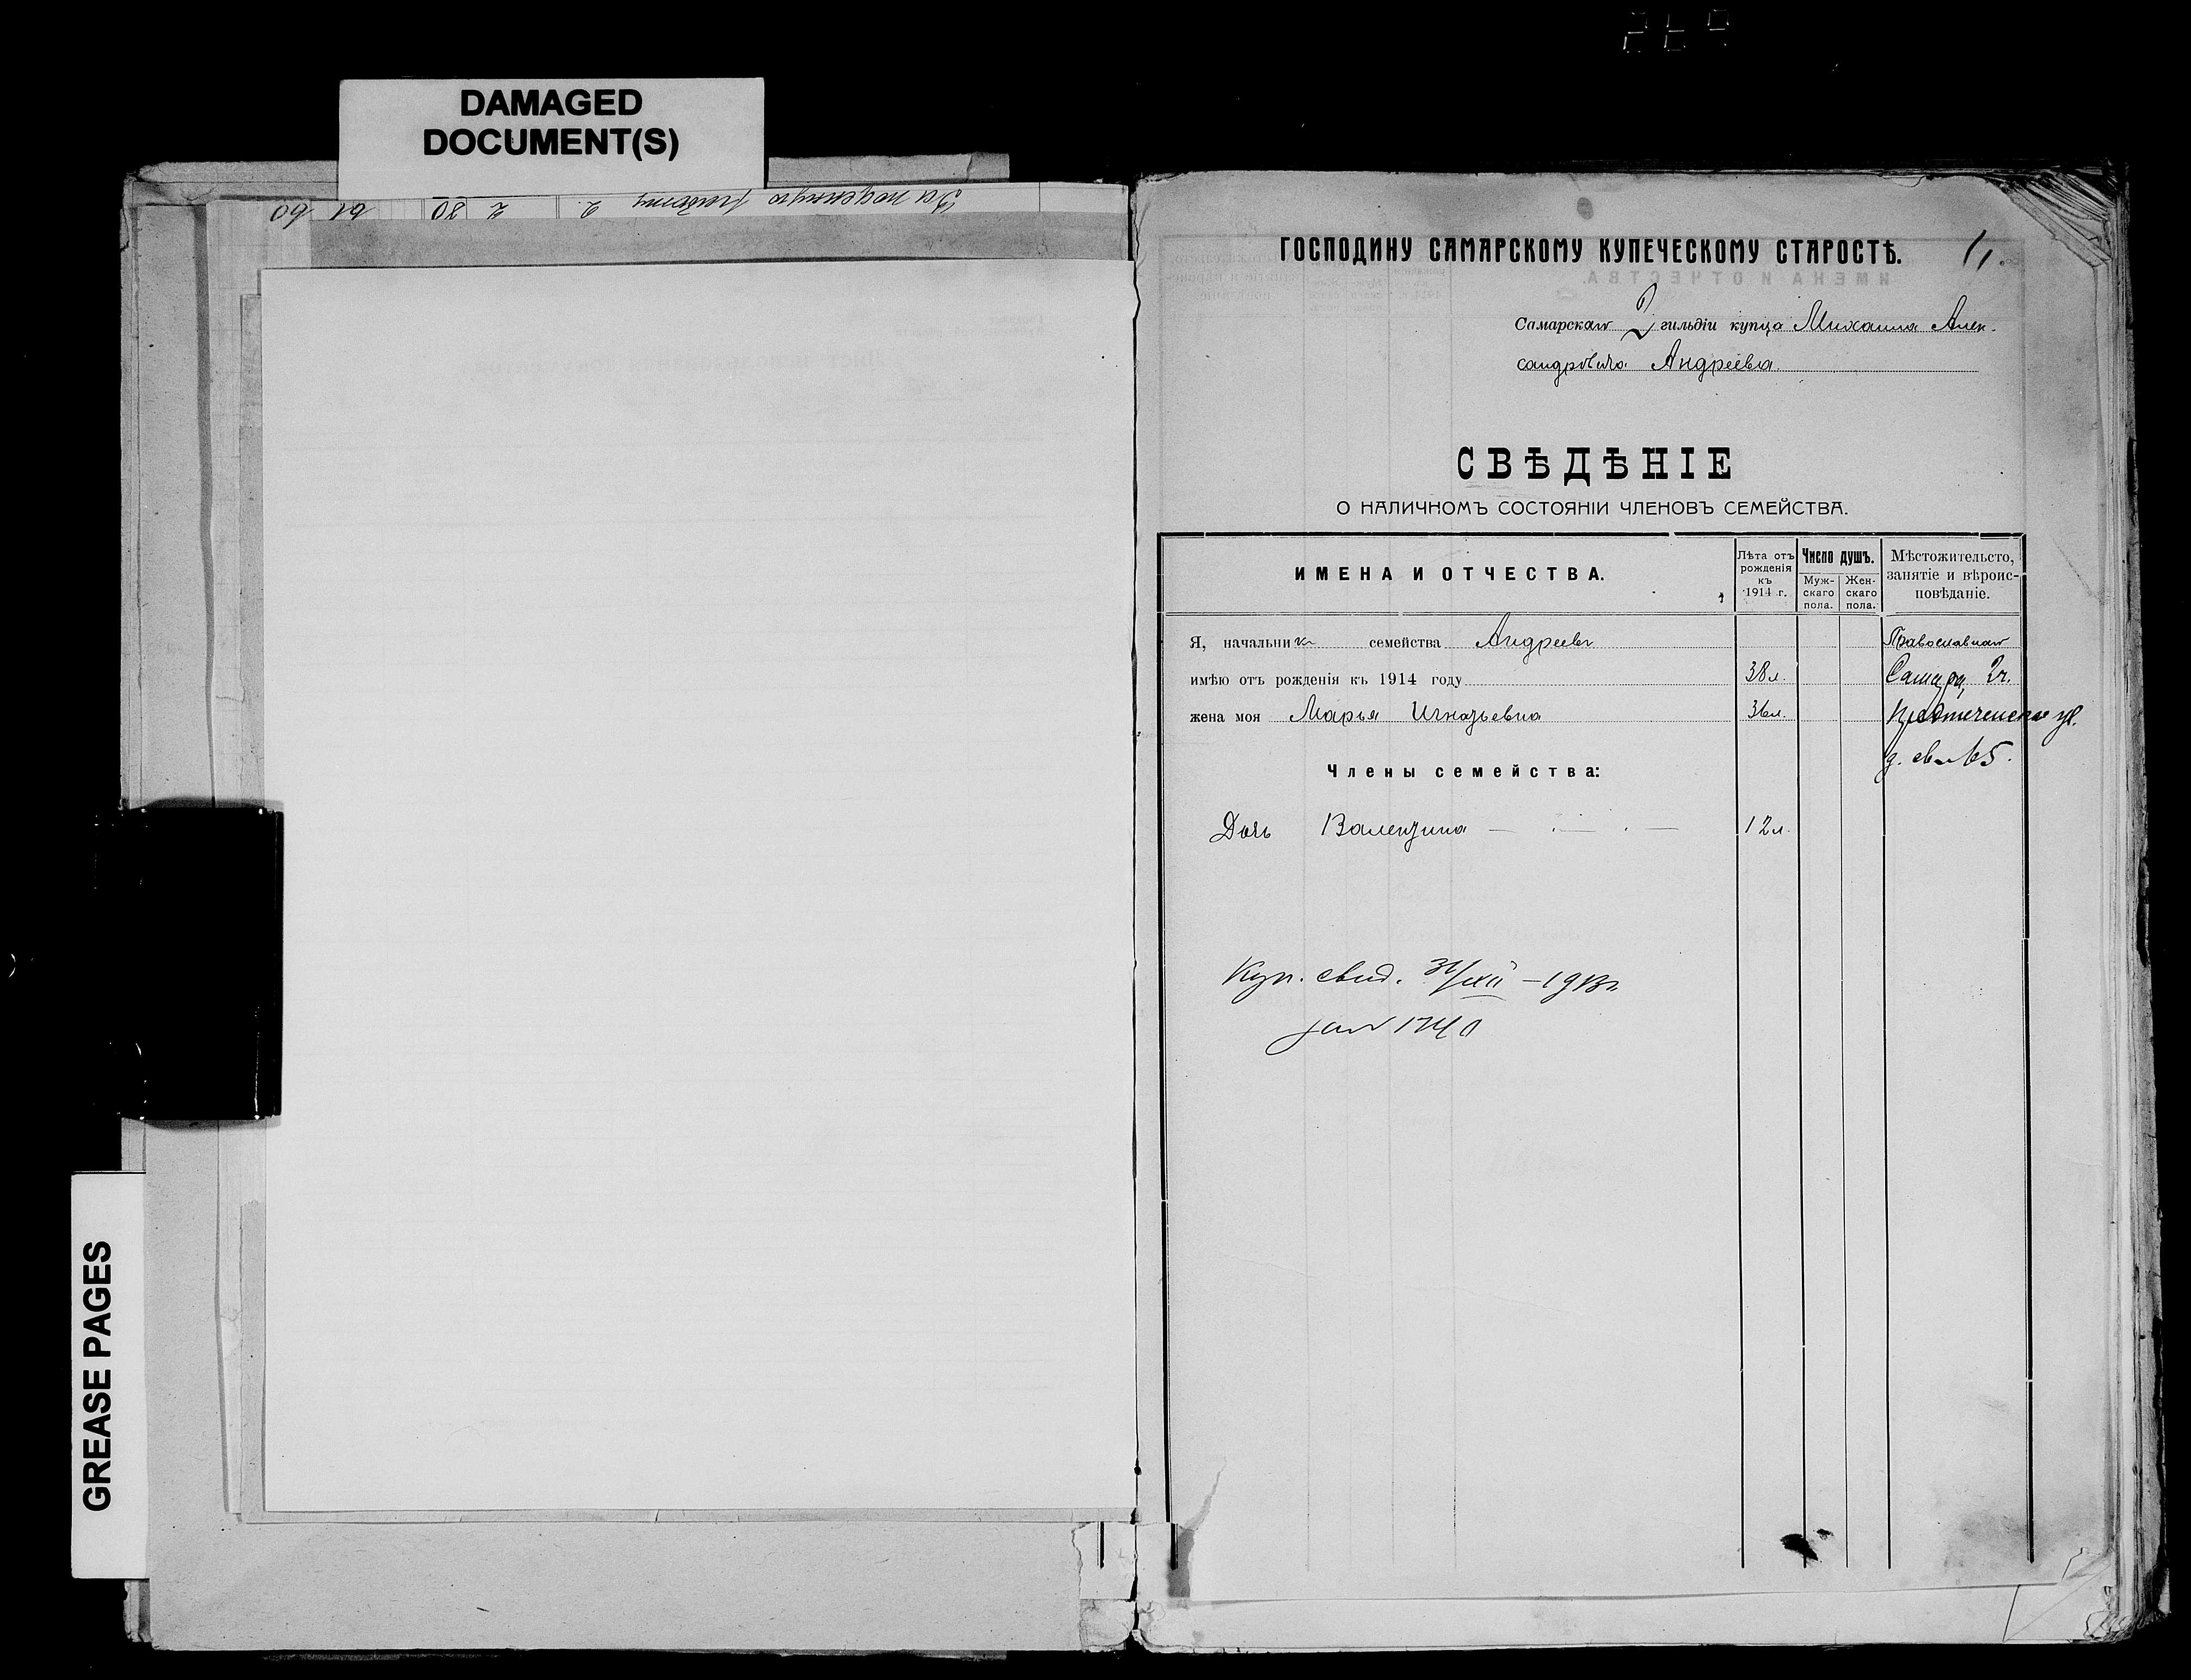 DAMAGED
DOCUMENT(S)
GREASE PAGES
За поденную работу 2. 2 30 61 60
ГОСПОДИНУ САМАРСКОМУ КУПЕЧЕСКОМУ СТАРОСТѢ.
11.
Самарскаго 2 гильдіи купца Михаила Алек-
сандровича Андреева
СВѢДѢНІЕ
О НАЛИЧНОМЪ СОСТОЯНІИ ЧЛЕНОВЪ СЕМЕЙСТВА.
ИМЕНА И ОТЧЕСТВА.
Лѣта отъ рожденія къ 1914 г.
Число душъ.
Муж-скаго пола.
Жен-скаго пола.
Мѣстожительсто, занятіе и вѣроис-повѣданіе.
Я, начальникъ семейства Андреевъ Православнаго
имѣю отъ рожденія къ 1914 году 38 л. Самара, 2 ч.
жена моя Марья Игнатьевна 36 л. Предтеченская ул.
д. № 65.
Члены семейства:
Дочь Валентина 12 л.
Куп. свид. 31/XII – 1913 г.
за № 1740